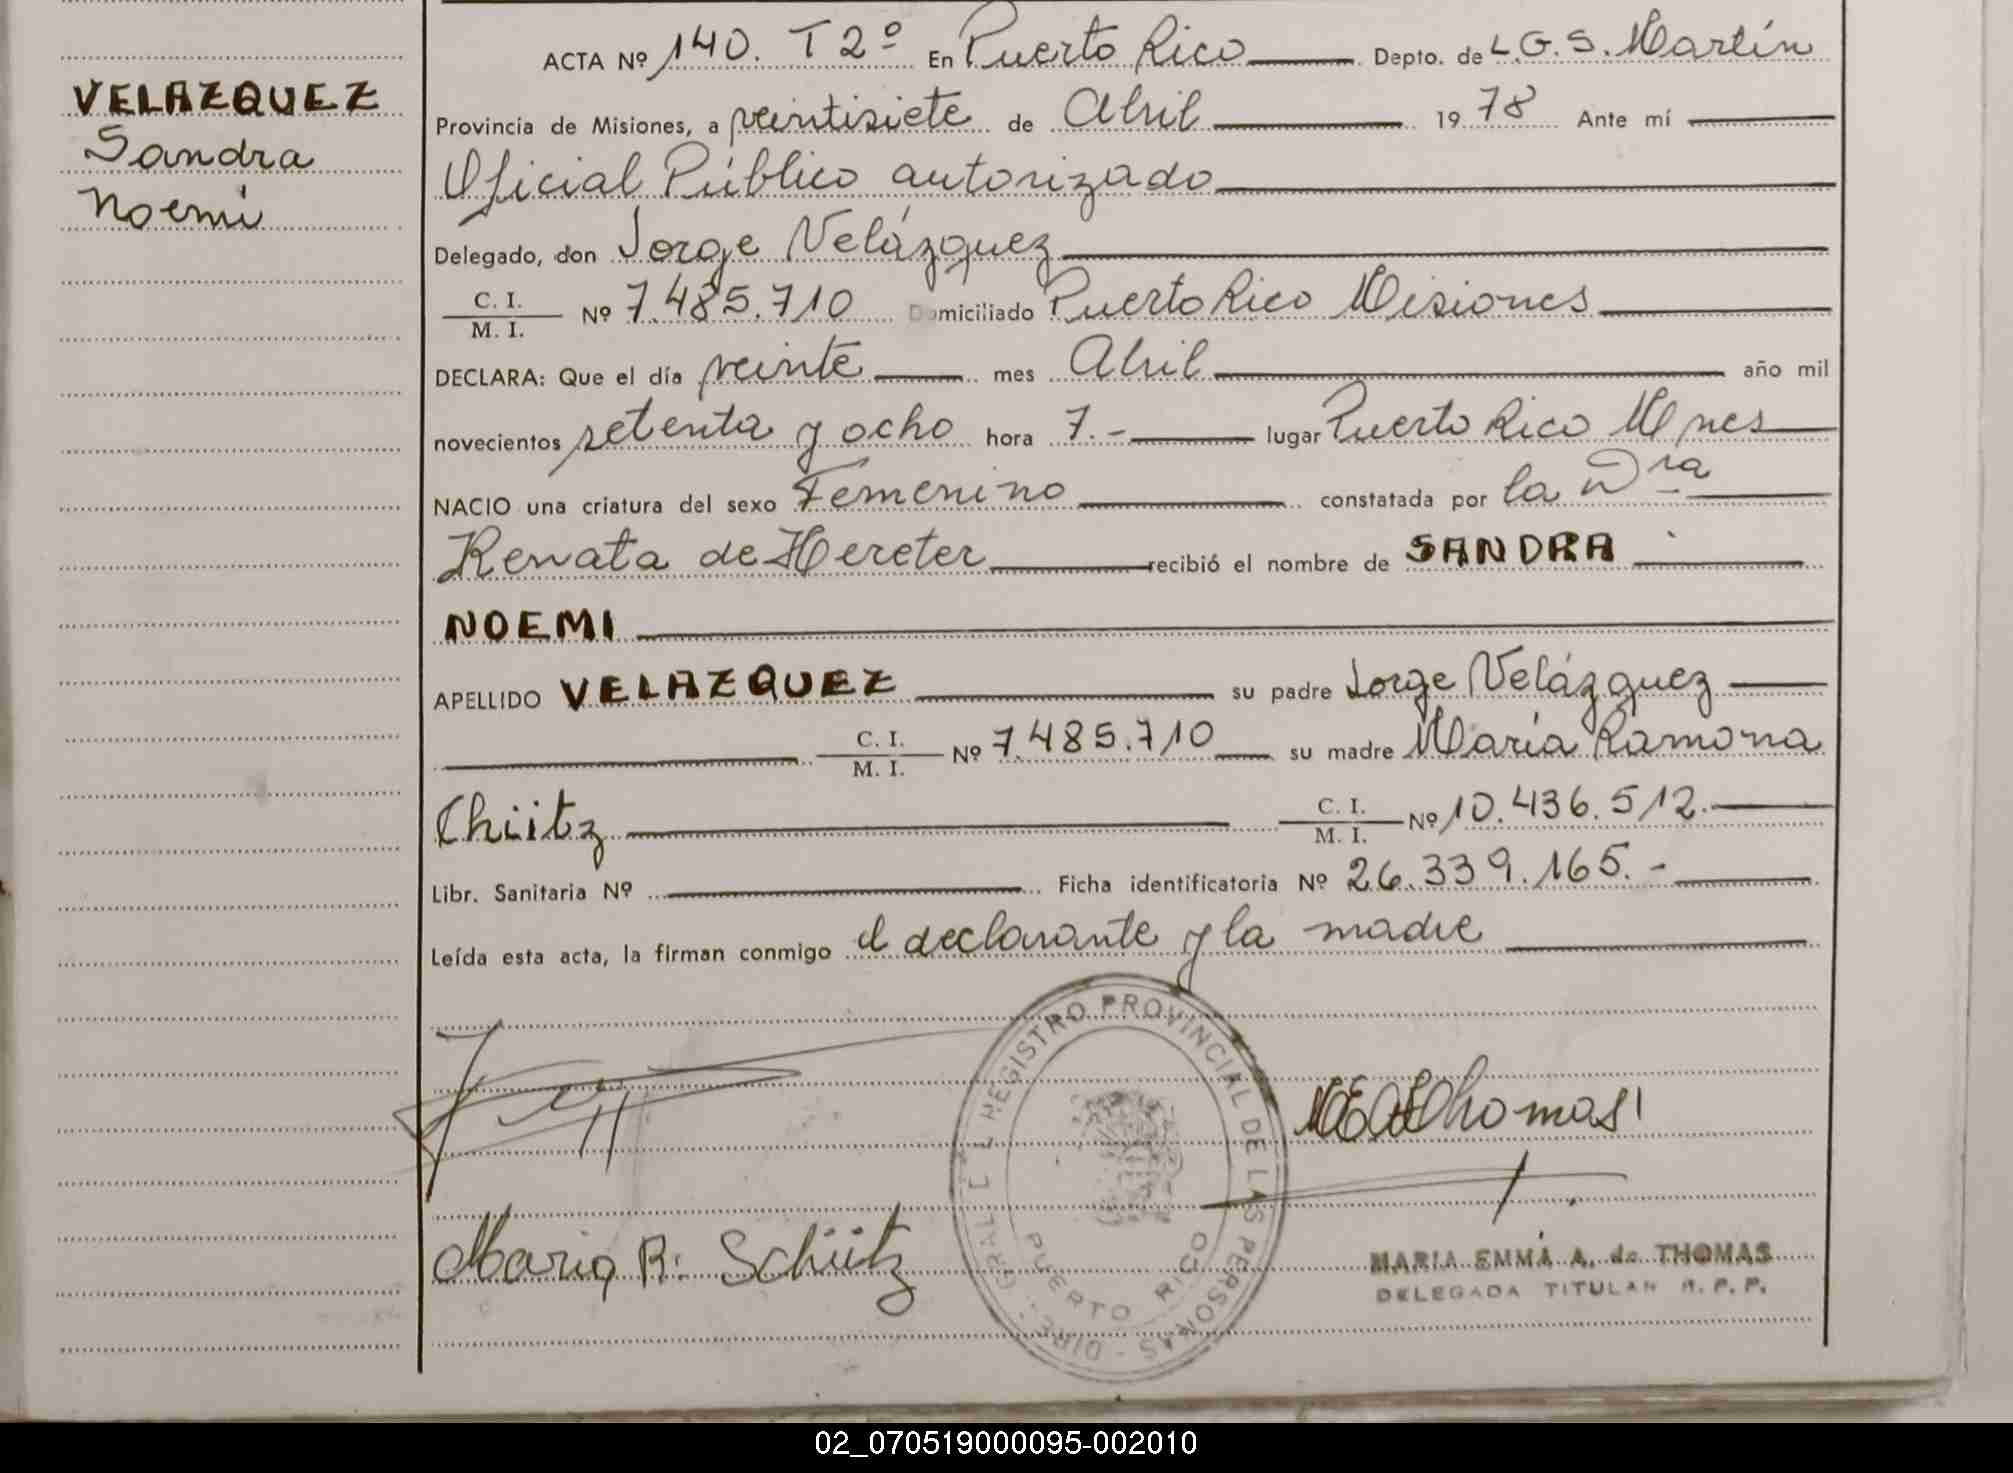 VELAZQUEZ
Sandra
Noemi
ACTA Nº 140. T 2º En Puerto Rico Depto. de L.G.S. Martín
Provincia de Misiones, a veintisiete de Abril 1978 Ante mí
Oficial Público autorizado
Delegado, don Jorge Velázquez
C. I.
M. I. Nº 7.485.710 Domiciliado Puerto Rico Misiones
DECLARA: Que el día veinte mes Abril año mil
novecientos setenta y ocho hora 7.- lugar Puerto Rico Mnes
NACIO una criatura del sexo Femenino constatada por la Dra
Renata de Hereter recibió el nombre de SANDRA
NOEMI
APELLIDO VELAZQUEZ su padre Jorge Velázquez
C. I.
M. I. Nº 7.485.710 su madre María Ramona
Chiitz C. I.
M. I. Nº 10.436.512.
Libr. Sanitaria Nº Ficha identificatoria Nº 26.339.165.-
Leída esta acta, la firman conmigo el declarante y la madre
REGISTRO PROVINCIAL DE LAS PERSONAS - DIRE. GRAL.
PUERTO RICO
Thomas
Maria R. Schütz
MARIA EMMA A. de THOMAS
DELEGADA TITULAR R. P. P.
02_070519000095-002010